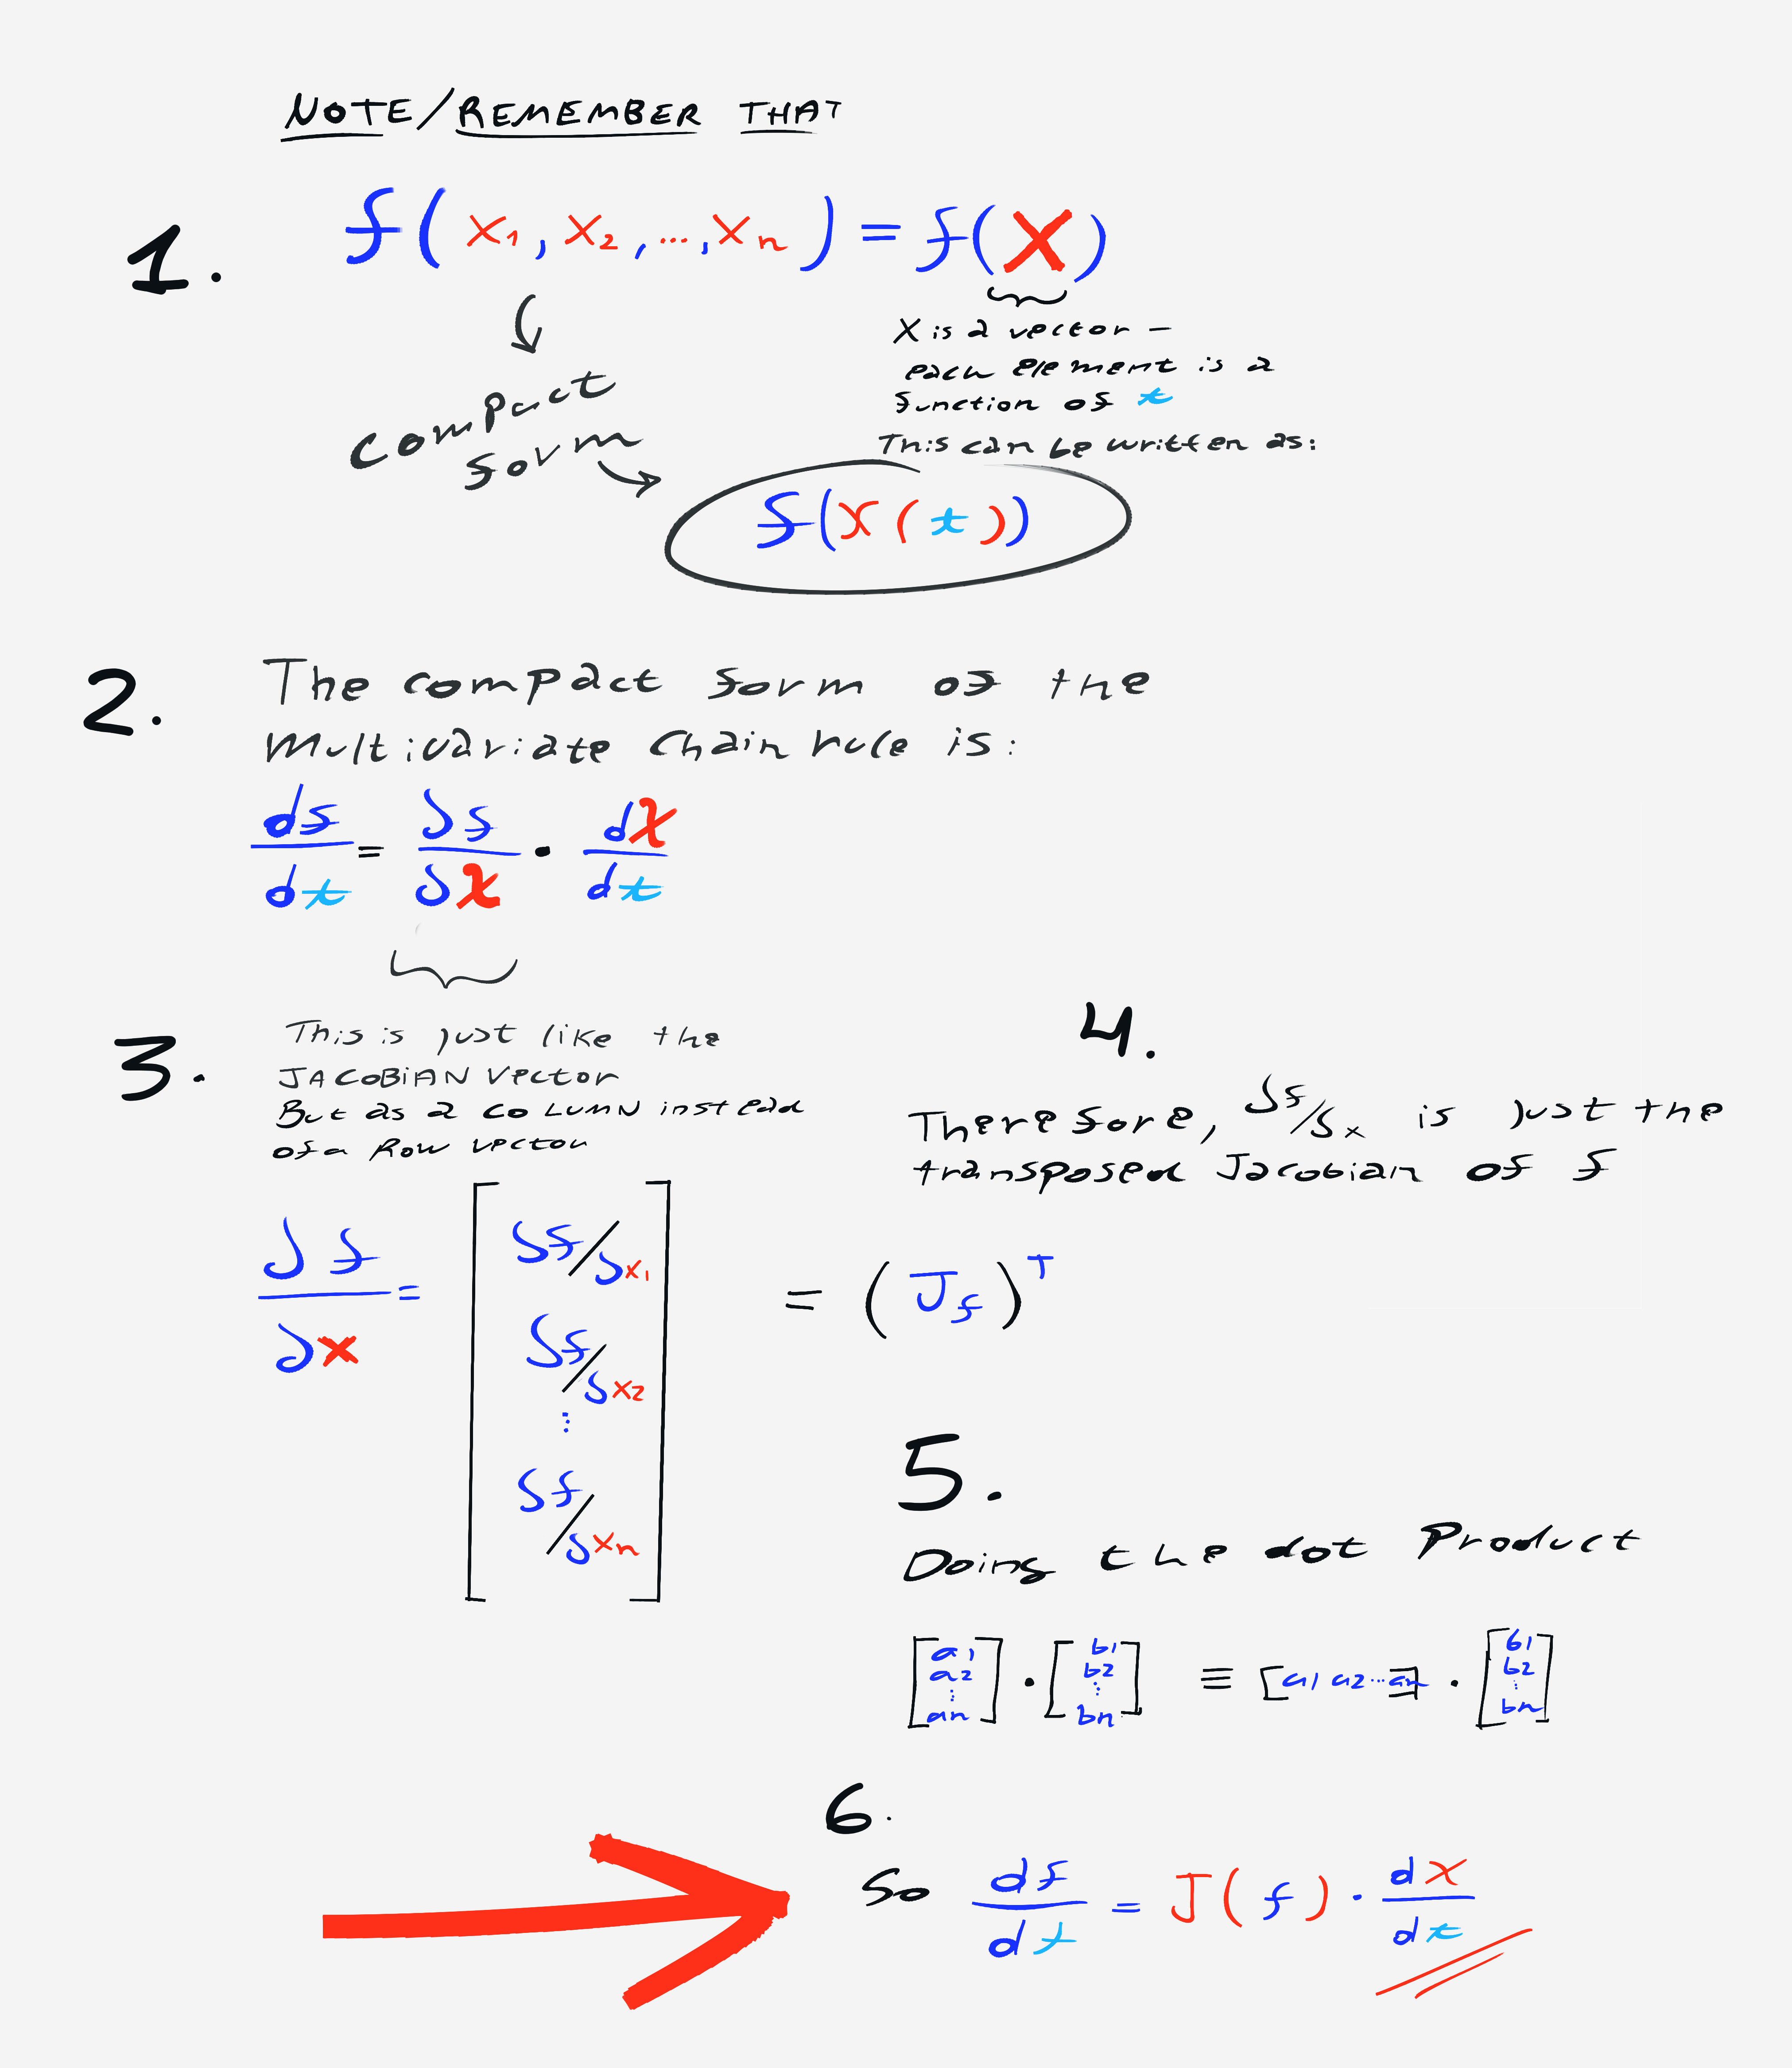 NOTE/REMEMBER THAT
1.
f(x1, x2, ..., xn) = f(X)
X is a vector —
each element is a
function of t
This can be written as:
compact
form
f(X(t))
2.
The compact form of the
Multivariate Chain rule is:
df/dt = δf/δX · dX/dt
3.
This is just like the
JACOBIAN Vector
But as a COLUMN instead
of a Row vector
δf/δx = [δf/δx1 δf/δx2 ⋮ δf/δxn] = (Jf)^T
4.
Therefore, δf/δx is just the
transposed Jacobian of f
5.
Doing the dot Product
[a1 a2 ⋮ an] · [b1 b2 ⋮ bn] ≡ [a1 a2 ... an] · [b1 b2 ⋮ bn]
6.
So df/dt = J(f) · dX/dt